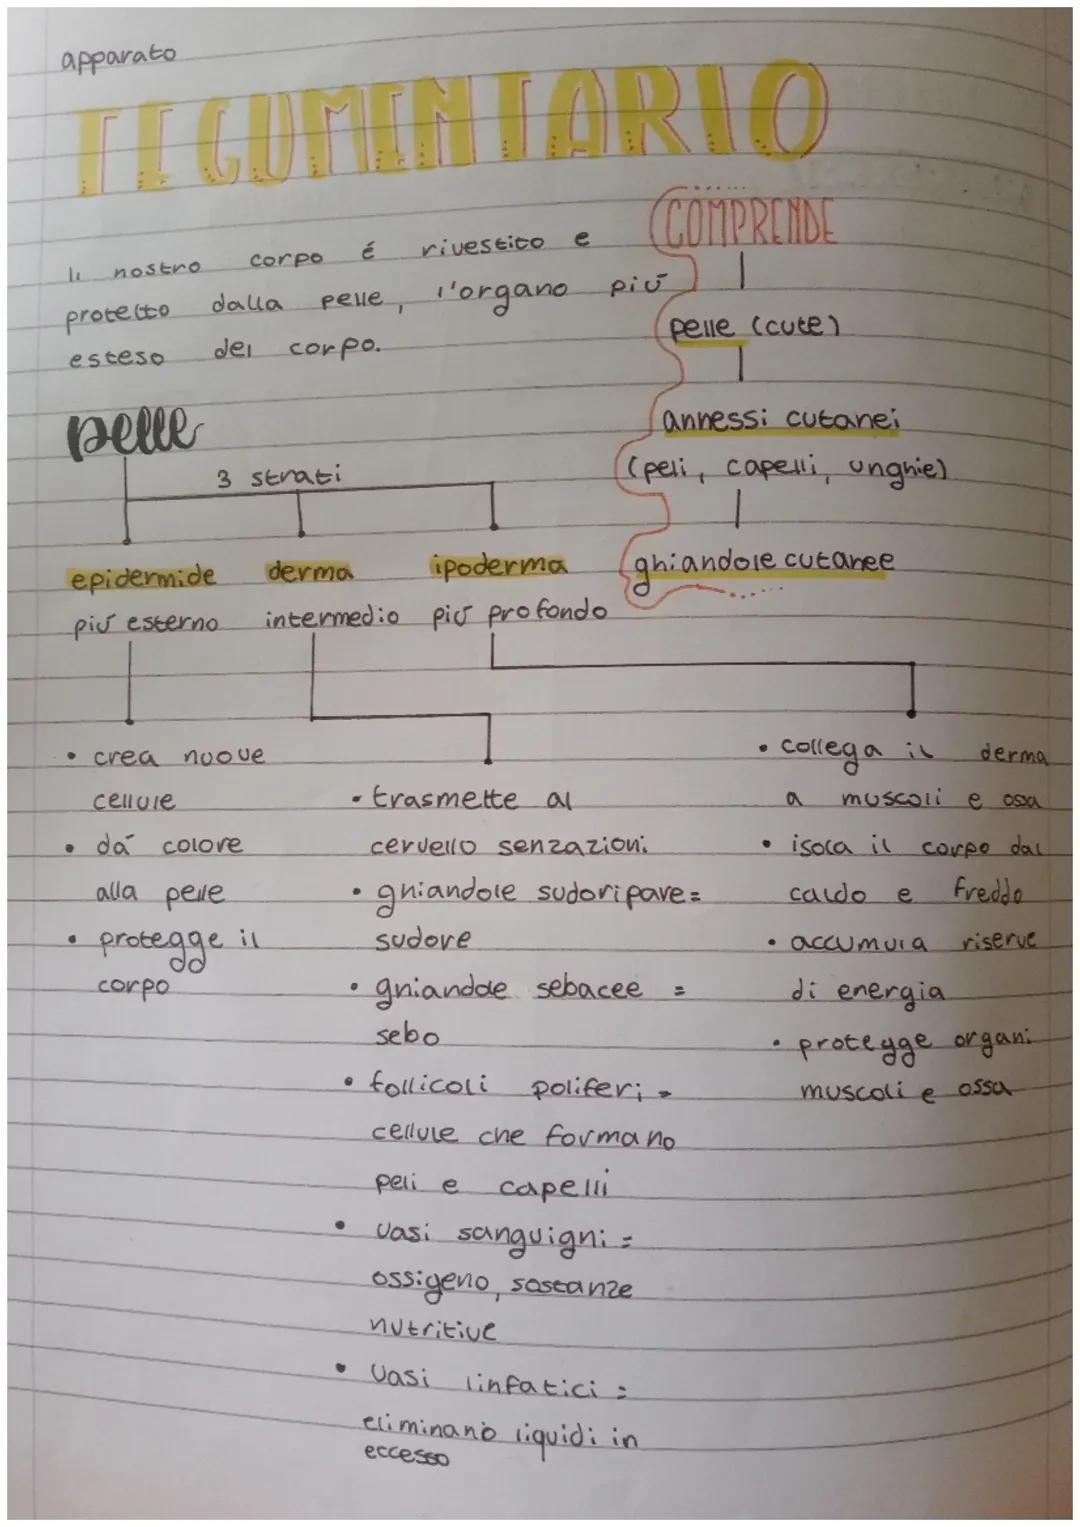 apparato
TEGUMENTARIO
Il nostro corpo é rivestito e
protetto dalla pelle, l'organo più
esteso del corpo.
COMPRENDE
pelle (cute)
annessi cutanei
(peli, capelli, unghie)
ghiandole cutanee
pelle
3 strati
epidermide
più esterno
derma
intermedio
ipoderma
più profondo
• crea nuove
cellule
• dá colore
alla pelle
• protegge il
corpo
• trasmette al
cervello senzazioni
• ghiandole sudoripare =
sudore
• ghiandole sebacee =
sebo
• follicoli poliferi =
cellule che formano
peli e capelli
• vasi sanguigni =
ossigeno, sostanze
nutritive
• vasi linfatici =
eliminano liquidi in
eccesso
• collega il derma
a muscoli e ossa
• isola il corpo dal
caldo e freddo
• accumula riserve
di energia
• protegge organi
muscoli e ossa